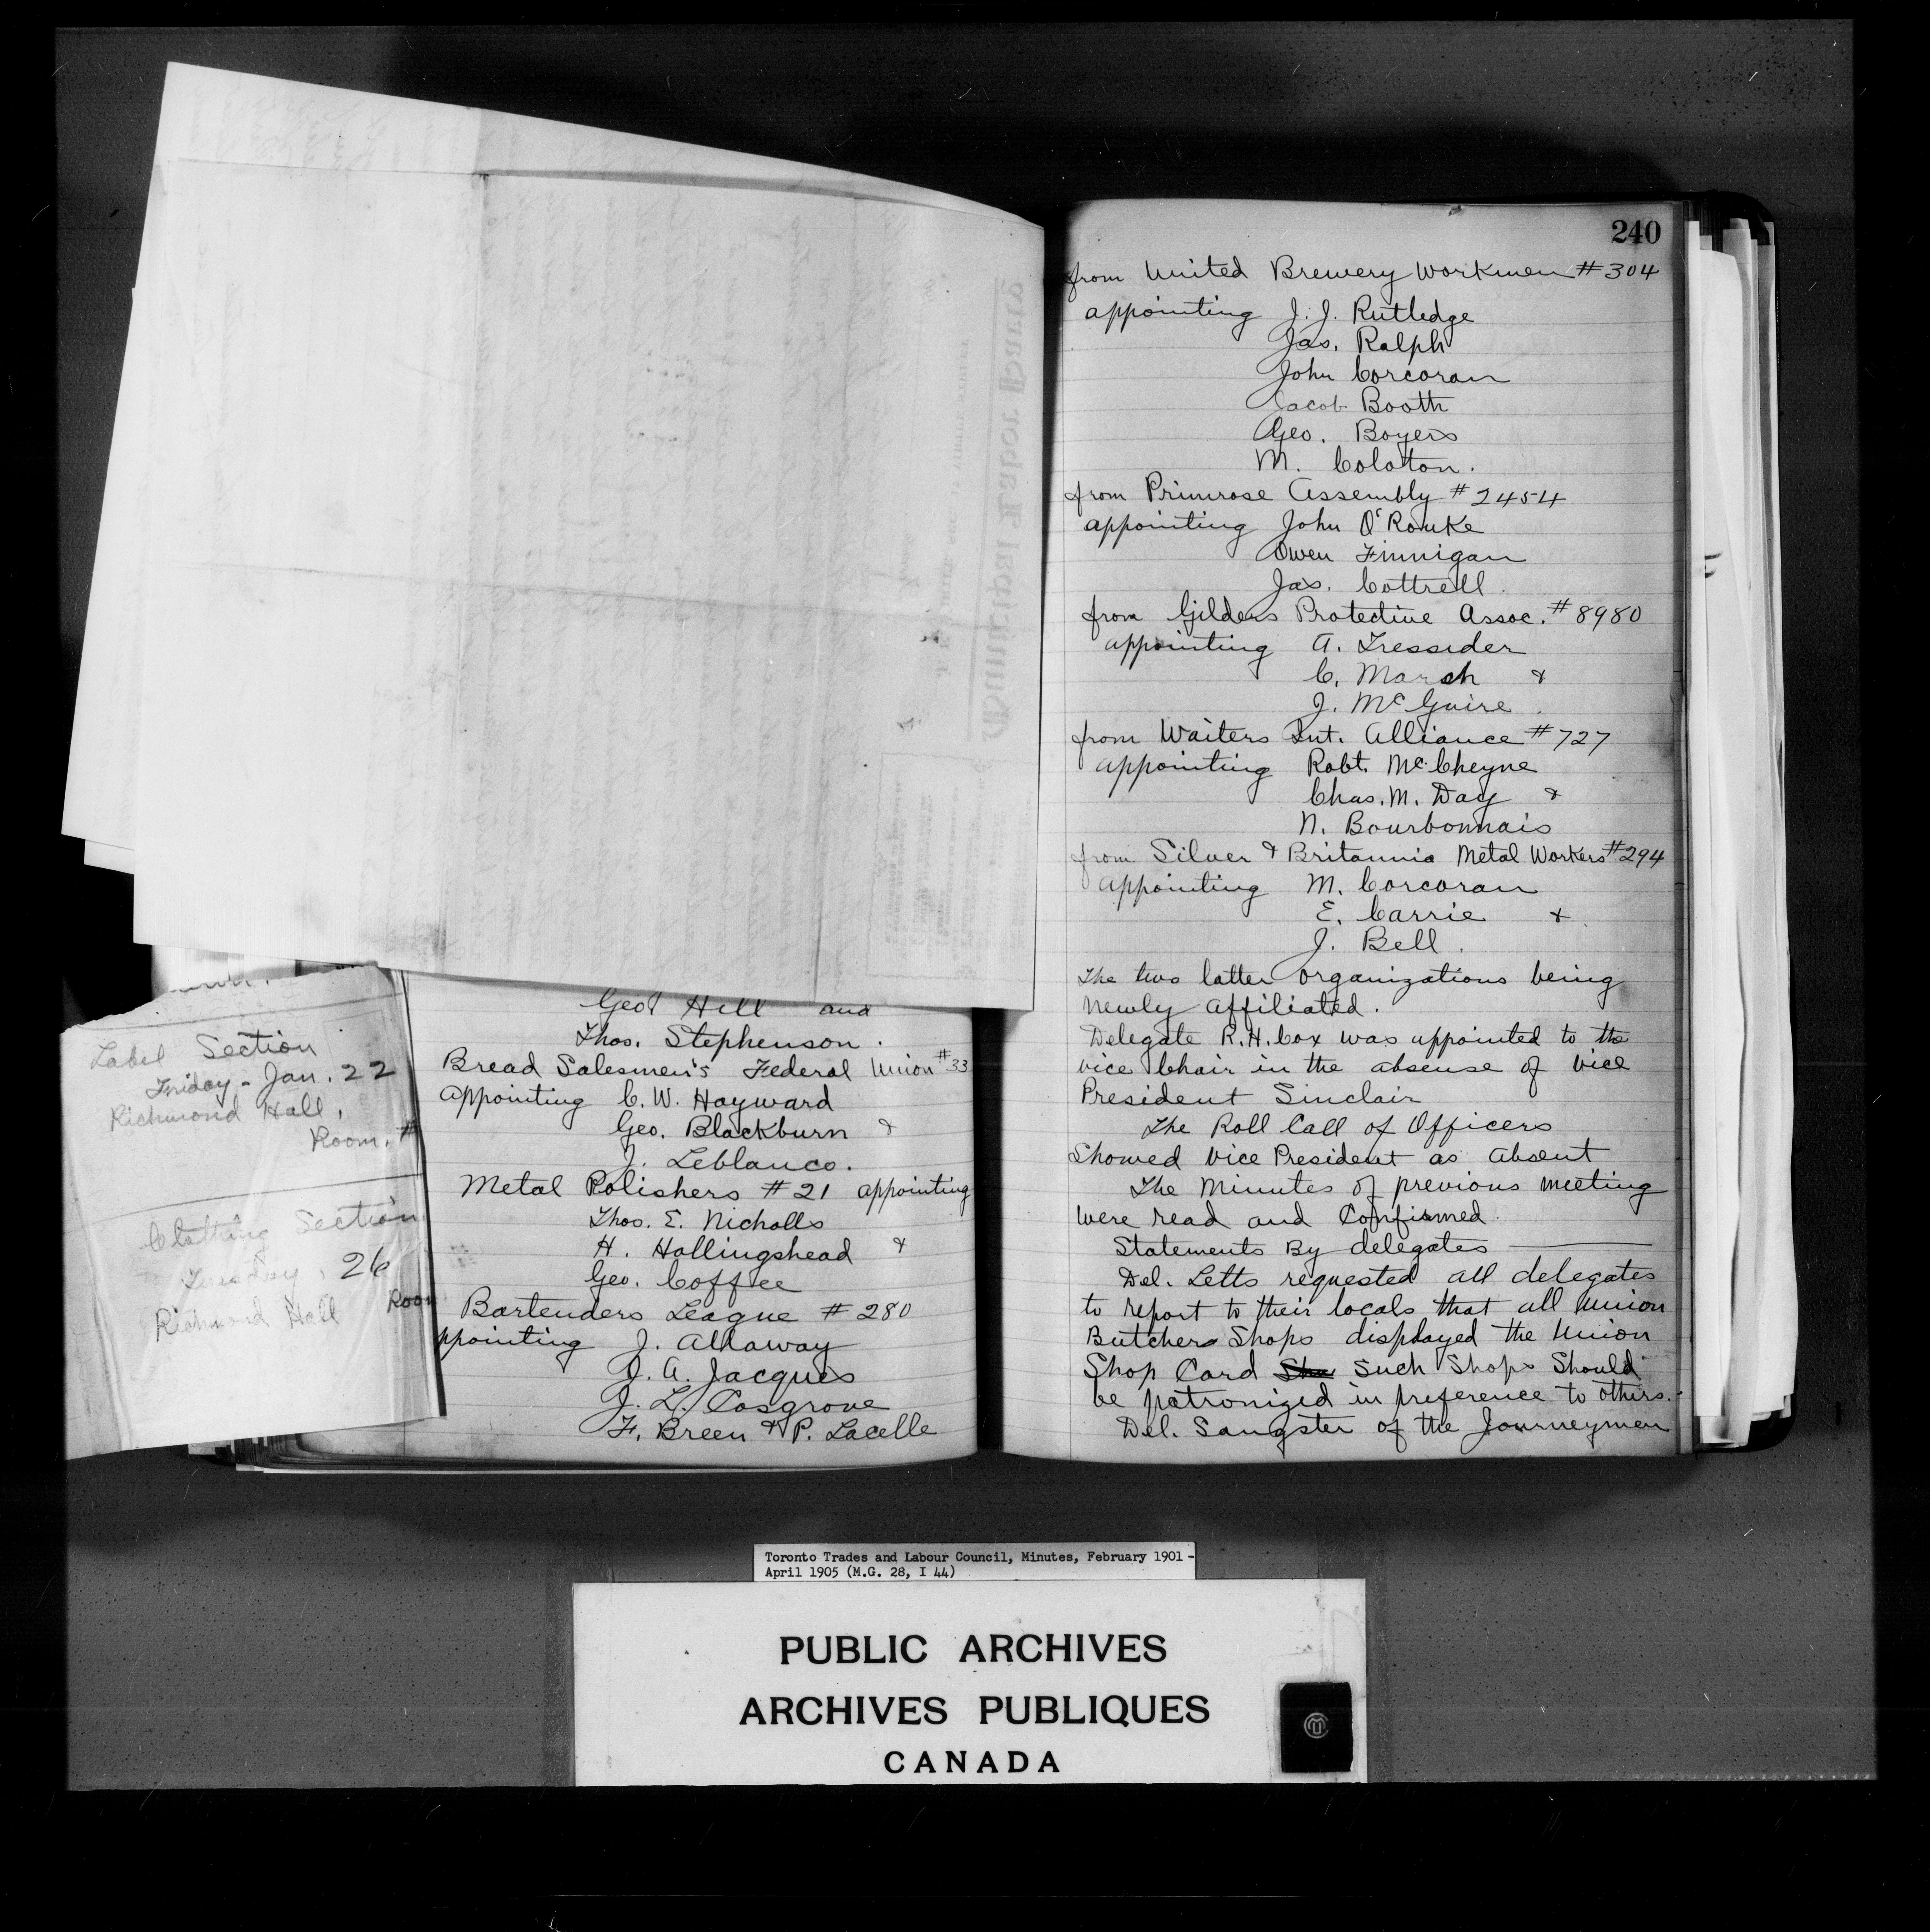 Label Section
Friday - Jan. 22
Richmond Hall,
Room. #
Clothing Section
Tuesday, 26
Richmond Hall Room
Geo Hill and
Thos. Stephenson.
Bread Salesmen's Federal Union #33
appointing C. W. Hayward
Geo. Blackburn &
J. Leblanco.
Metal Polishers #21 appointing
Thos. E. Nicholls
H. Hollingshead &
Geo. Coffee
Bartenders League #280
ppointing J. Allaway
J. A. Jacques
J. L. Cosgrove
F. Breen & P. Lacelle
240
from United Brewery Workmen #304
appointing J. J. Rutledge
Jas. Ralph
John Corcoran
Jacob Booth
Geo. Boyers
M. Coloton.
from Primrose Assembly #2454
appointing John O'Rouke
Owen Finnigan
Jas. Cottrell.
from Gilders Protective Assoc. #8980
appointing A. Tressider
C. Marsh &
J. McGuire.
from Waiters Int. Alliance #727
appointing Robt. McCheyne
Chas. M. Day &
N. Bourbonnais
from Silver & Britannia Metal Workers #294
appointing M. Corcoran
E. Carrie &
J. Bell.
The two latter organizations being
newly affiliated.
Delegate R. H. Cox was appointed to the
vice Chair in the absense of vice
President Sinclair
The Roll Call of Officers
Showed Vice President as absent
The Minutes of previous meeting
were read and Confirmed.
Statements By delegates
Del. Letts requested all delegates
to report to their locals that all Union
Butchers Shops displayed the Union
Shop Card She Such Shops Should
be patronized in preference to others.
Del. Sangster of the Journeymen
Toronto Trades and Labour Council, Minutes, February 1901 -
April 1905 (M.G. 28, I 44)
PUBLIC ARCHIVES
ARCHIVES PUBLIQUES
CANADA